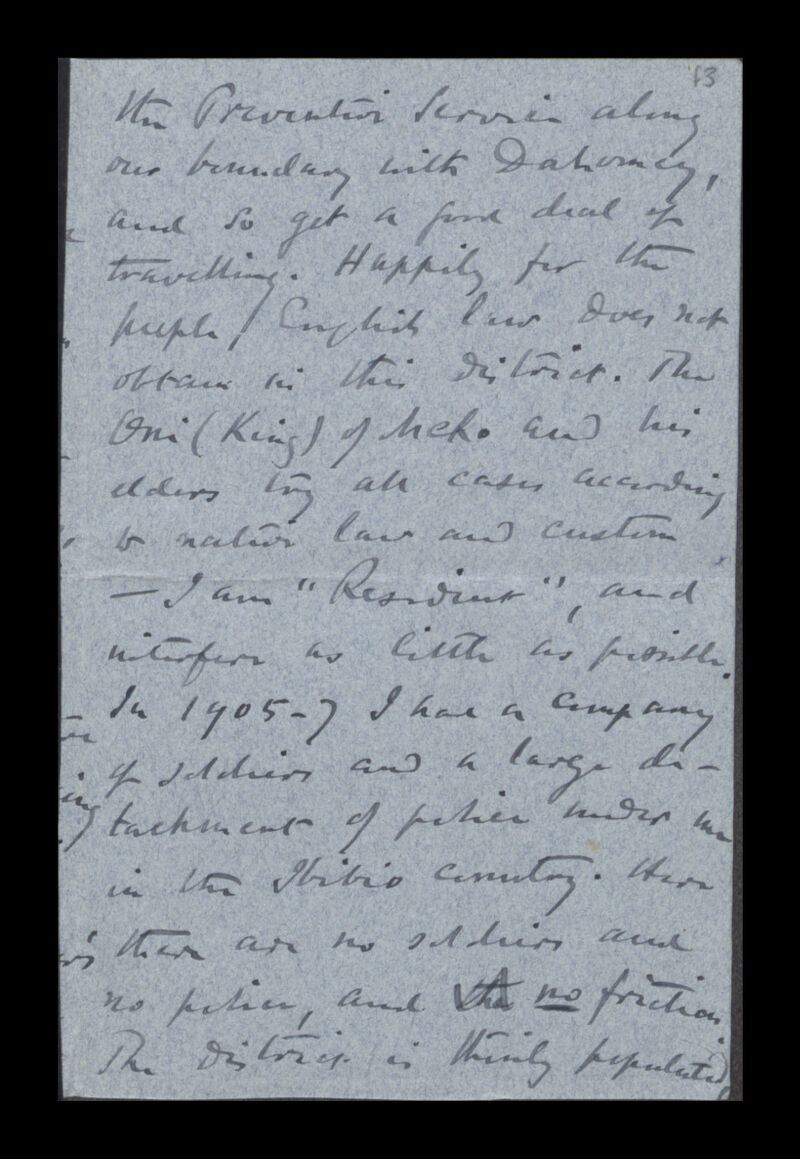 13
the Preventive Service along
our boundary with Dahomey,
and so get a good deal of
travelling. Happily for the
people, English law does not
obtain in this district. The
Oni (King) of Meko and his
elders try all cases according
to native law and custom
— I am "Resident", and
interfere as little as possible.
In 1905-7 I had a company
of soldiers and a large de-
tachment of police under me
in the Ibibio country. Here
there are no soldiers and
no police, and the no friction.
The district is thinly populated,